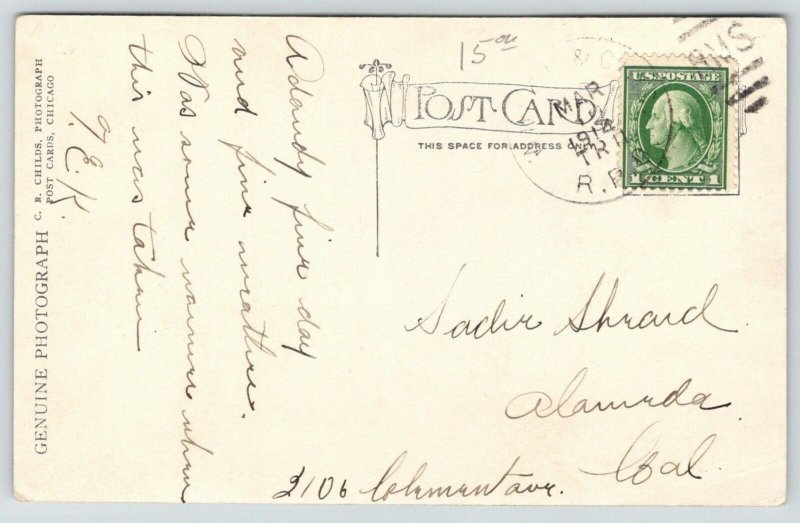 15ou
POST CARD
THIS SPACE FOR ADDRESS ONLY
MAR
1914
TR 11
R.P.O.
RMS
U.S. POSTAGE
1 CENT 1
A dandy fine day
and fine weather.
Was some warmer when
this was taken
F.E.K.
GENUINE PHOTOGRAPH C. R. CHILDS, PHOTOGRAPH
POST CARDS, CHICAGO
Sadie Shraid.
Alameda
Cal.
2106 Clement ave.